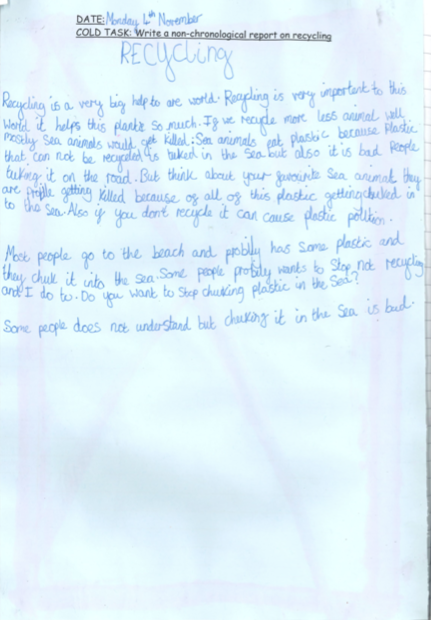 DATE: Monday 4th November
COLD TASK: Write a non-chronological report on recycling
RECycling
Recycling is a very big help to are world. Recycling is very important to this
world it helps this planks so much. If we recycle more less animal well
mostly Sea animals would get killed. Sea animals eat plastic because Plastic
that can not be recycled is tuked in the Sea but also it is bad People
tuking it on the road. But think about your favourite Sea animal they
are getting killed because of all of this plastic getting chuked in
to the Sea. Also if you don't recycle it can cause plastic polition.
Most people go to the beach and probily has some plastic and
they chuk it into the sea. Some people probily wants to Stop not recycling
and I do to. Do you want to stop chuking plastic in the Sea?
Some people does not understand but chuking it in the Sea is bad.